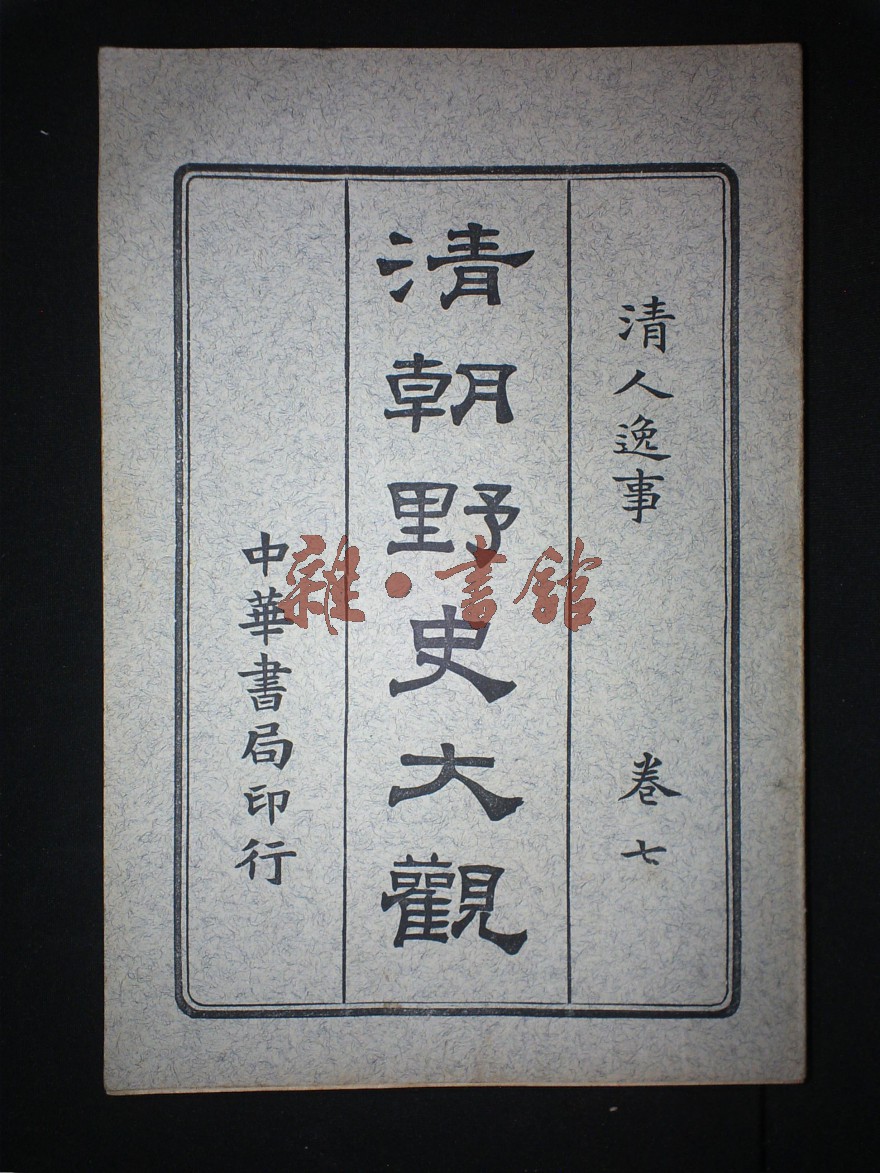 清人逸事 卷七
清朝野史大觀
中華書局印行
雜·書館